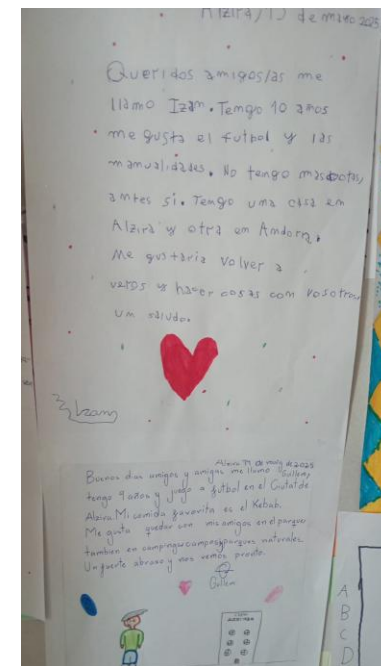 Alzira, 15 de mayo 2025
Queridos amigos/as me
llamo Izan. Tengo 10 años
me gusta el futbol y las
manualidades. No tengo mascotas,
antes si. Tengo uma casa em
Alzira y otra em Andorra.
Me gustaria volver a
veros y hacer cosas com vosotros
um saludo.
Izan
Alzira 14 de maig de 2025
Buenos dias amigos y amigas me llamo Guillem,
tengo 9 años y juego a futbol en el Ciutat de
Alzira. Mi comida favorita es el Kebab.
Me gusta quedar con mis amigos en el parque
tambien en campings campos y parques naturales.
Un fuerte abrazo y nos vemos pronto.
Guillem
A
B
C
D